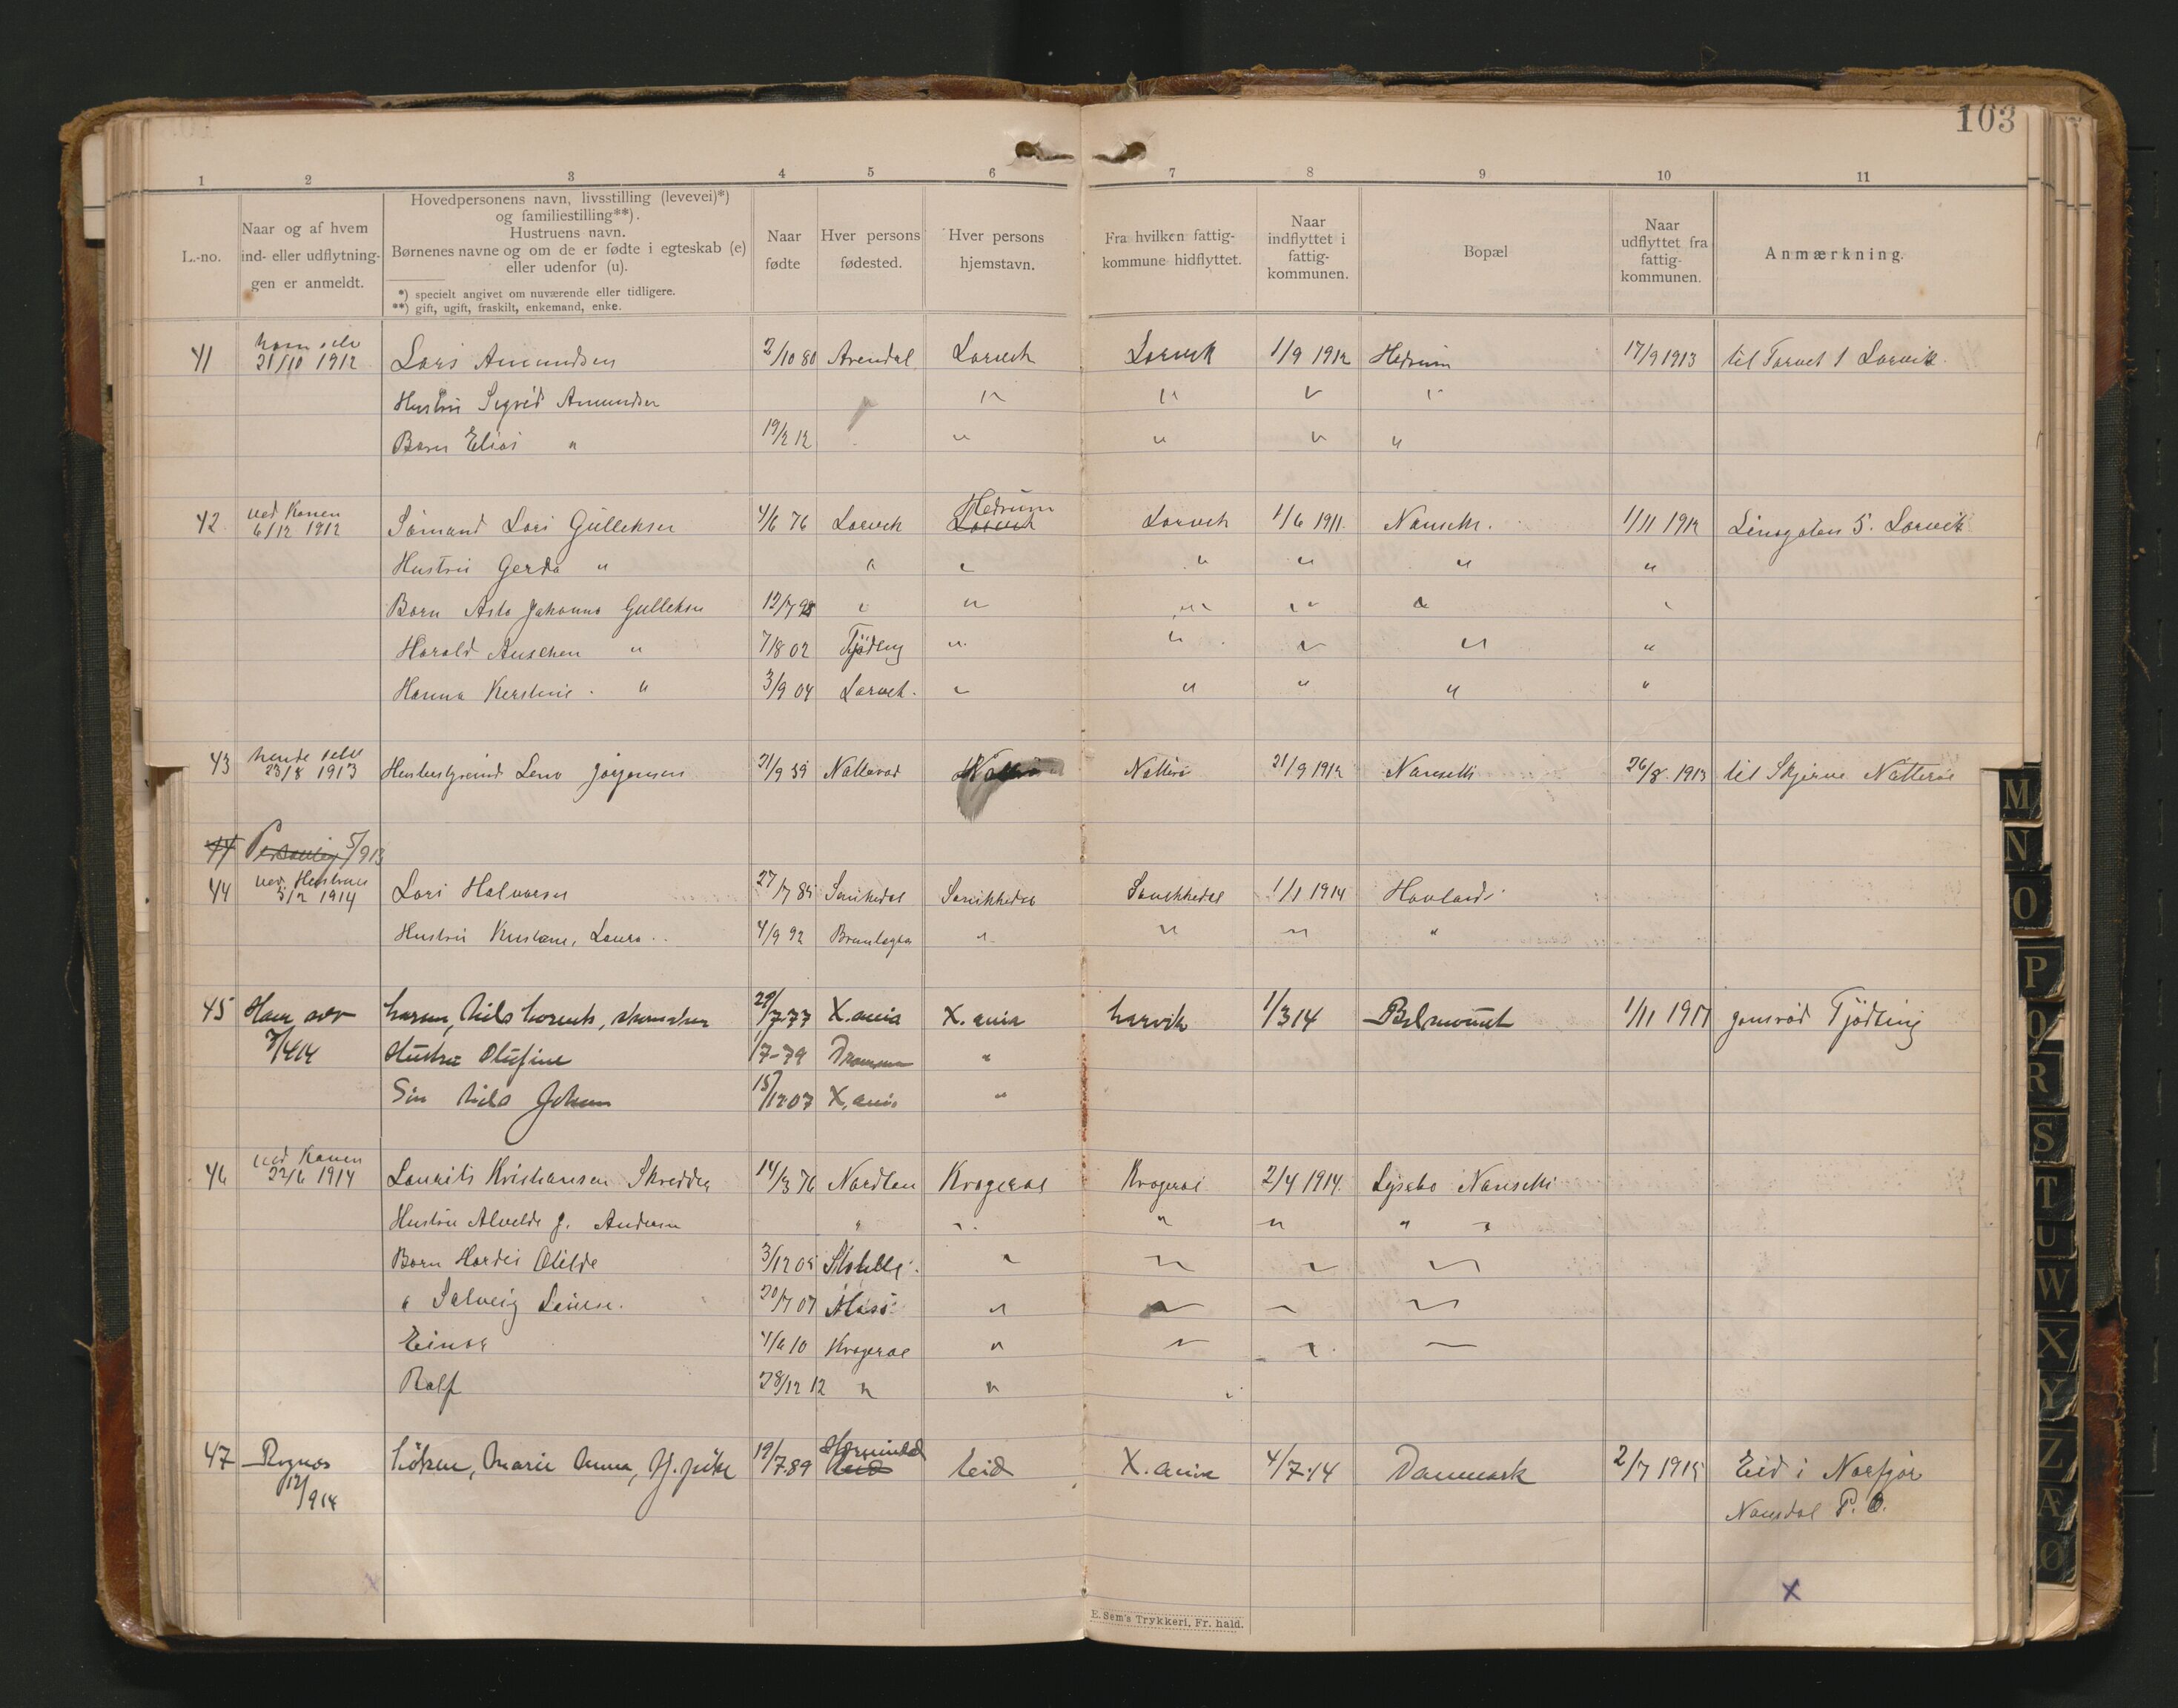 103
1 2 3 4 5 6 7 8 9 10 11
L.-no.
Naar og af hvem
ind- eller udflytnin-
gen er anmeldt.
Hovedpersonens navn, livsstilling (levevei)*)
og familiestilling**).
Hustruens navn.
Børnenes navne og om de er fødte i egteskab (e)
eller udenfor (u).
*) specielt angivet om nuværende eller tidligere.
**) gift, ugift, fraskilt, enkemand, enke.
Naar
fødte
Hver persons
fødested.
Hver persons
hjemstavn.
Fra hvilken fattig-
kommune hidflyttet.
Naar
indflyttet i
fattig-
kommunen.
Bopæl
Naar
udflyttet fra
fattig-
kommunen.
Anmærkning.
41 21/10 1912 Lars Amundsen 2/10 80 Arendal Larvik Larvik 1/9 1912 Hedrum 17/9 1913 til Torvet 1 Larvik
Hustru Sigrid Amundsen " " " "
Barn Elias " 19/2 12 " " " "
ved Konen Hedrum
42 6/12 1912 Sømand Lars Gulleksen 4/6 76 Larvik Larvik Larvik 1/6 1911. Nanseth. 1/11 1912 Linegaten 5. Larvik
Hustru Gerda " " " " " " "
Barn Asta Johanna Gulleksen 12/7 98 " " " " " "
Harald " 7/8 02 Tjödling " " " " "
Hanna Kirstine " 3/9 04 Larvik. " " " " "
43 23/8 1913 Lena Jörgensen 21/9 39 Nøtterö 21/9 1912 Nanseth 26/8 1913 til Skjerve Nøtterøe
44 Personlig 5/913
ved Hustruen
44 5/2 1914 Lars Halvorsen 27/7 85 Sanikedal Sanikkedal Sanikkedal 1/1 1914 Hovland
Hustru Kristiane, Laura 4/9 92 Brunlagnes " " " "
45 Ham selv Larsen, Nils Laurits, skomaker 29/7-77 X.ania X.ania Larvik 1/3 14 Belmount 1/11 1917 Tjödling
7/4 14 Hustru Olufine 1/7-79 Drammen "
Sön Nils Johan 15/12 07 X.ania "
ved Konen
46 22/6 1914 Laurits Kristiansen Skredder 14/3 76 Kragerøe Kragerøe 2/4 1914. Lysebo Nanseth
Hustru Alvilde J. Andersen " " " " " "
Barn Hardis Otilde 3/12 05 " " " "
" Solveig Louise. 20/7 07 " " " "
Einar 4/6 10 Kragerøe " " " "
Ralf 28/12 12 " "
Hornindal
47 Rognes Marie Anna, Tj. pike 19/7.89 Eid Eid X.ania 4/7.14 Danmark 2/7 1915 Eid i Norfjor
12/9 14 P. O.
x
x
E. Sem's Trykkeri, Fr. hald.
M
N
O
P
Q
R
S
T
U
W
X
Y
Z
Æ
Ø